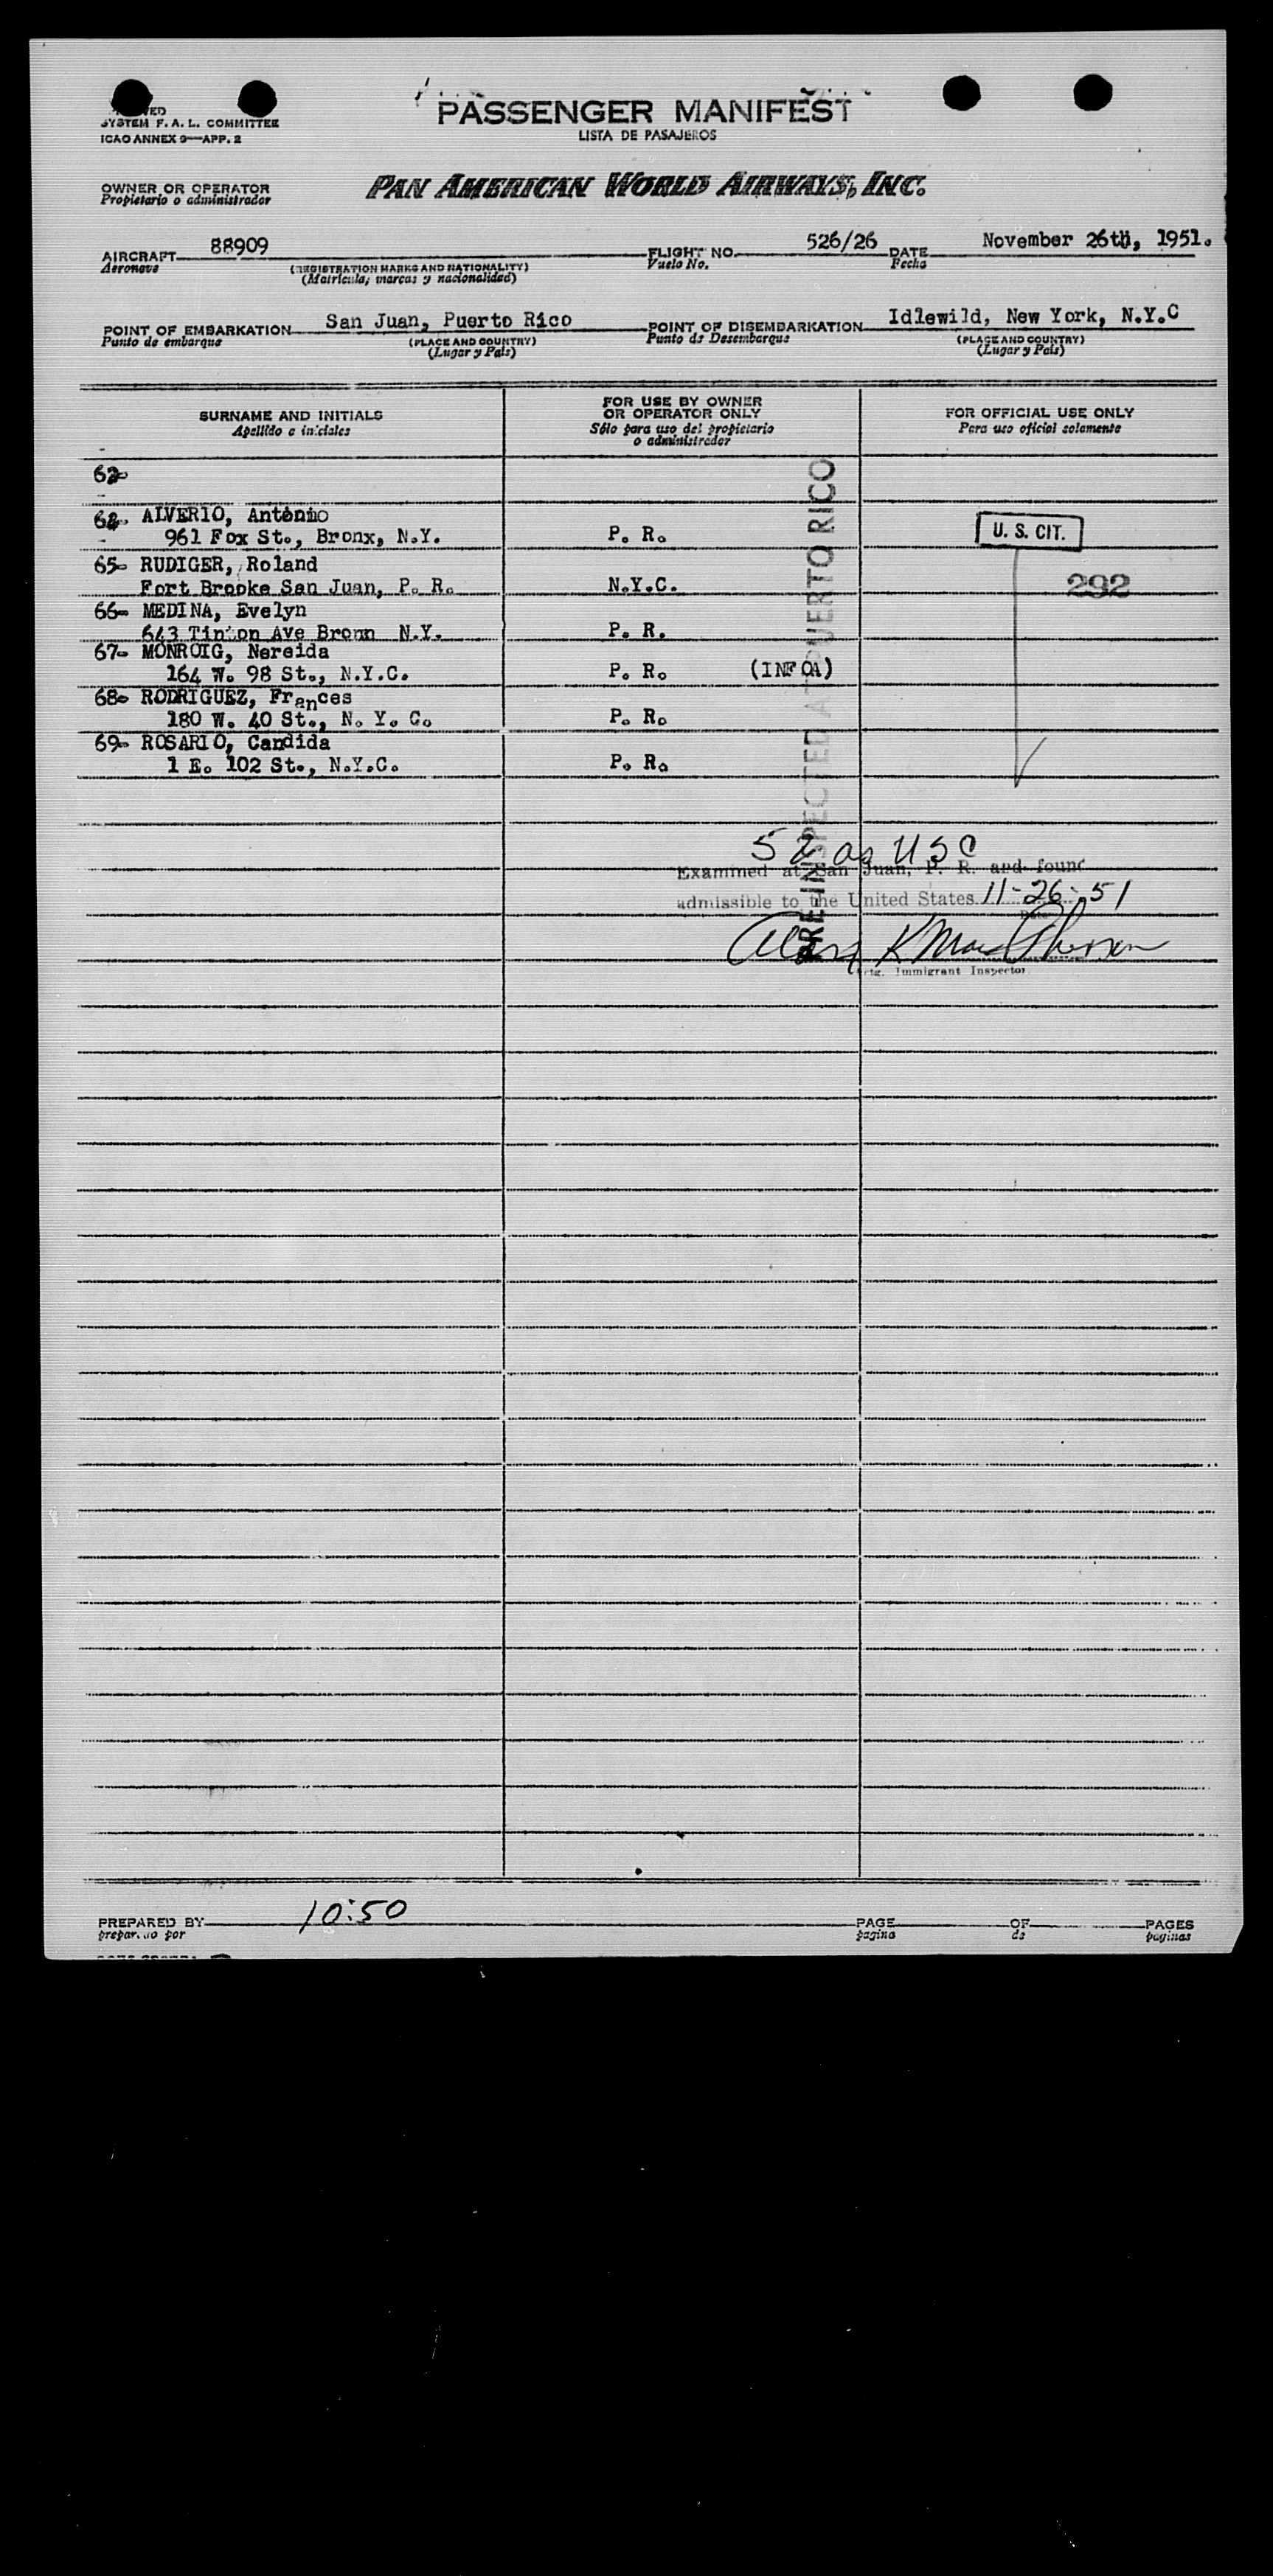 PASSENGER MANIFEST
LISTA DE PASAJEROS
SYSTEM F. A. L. COMMITTEE
ICAO ANNEX 9—APP. 2
OWNER OR OPERATOR
Propietario o administrador
PAN AMERICAN WORLD AIRWAYS, INC.
AIRCRAFT 88909 FLIGHT NO. 526/26 DATE November 26th, 1951.
Aeronave (REGISTRATION MARKS AND NATIONALITY) Vuelo No. Fecha
(Matrícula, marcas y nacionalidad)
POINT OF EMBARKATION San Juan, Puerto Rico POINT OF DISEMBARKATION Idlewild, New York, N.Y.C
Punto de embarque (PLACE AND COUNTRY) Punto de Desembarque (PLACE AND COUNTRY)
(Lugar y País) (Lugar y País)
SURNAME AND INITIALS
Apellido e iniciales
FOR USE BY OWNER
OR OPERATOR ONLY
Sólo para uso del propietario
o administrador
FOR OFFICIAL USE ONLY
Para uso oficial solamente
ALVERIO, Antonio
961 Fox St., Bronx, N.Y. P. R. U. S. CIT.
65- RUDIGER, Roland
Fort Brooke San Juan, P. R. N.Y.C. 292
66- MEDINA, Evelyn
643 Tinton Ave Bronn N.Y. P. R.
67- MONROIG, Nereida
164 W. 98 St., N.Y.C. P. R. (INF OA)
68- RODRIGUEZ, Frances
180 W. 40 St., N. Y. C. P. R.
69- ROSARIO, Candida
1 E. 102 St., N.Y.C. P. R.
PRE-INSPECTED AT PUERTO RICO
52 as USC
Examined at San Juan, P. R. and found
admissible to the United States 11-26-51
Date
Immigrant Inspector
10:50
PREPARED BY PAGE OF PAGES
preparado por página de páginas